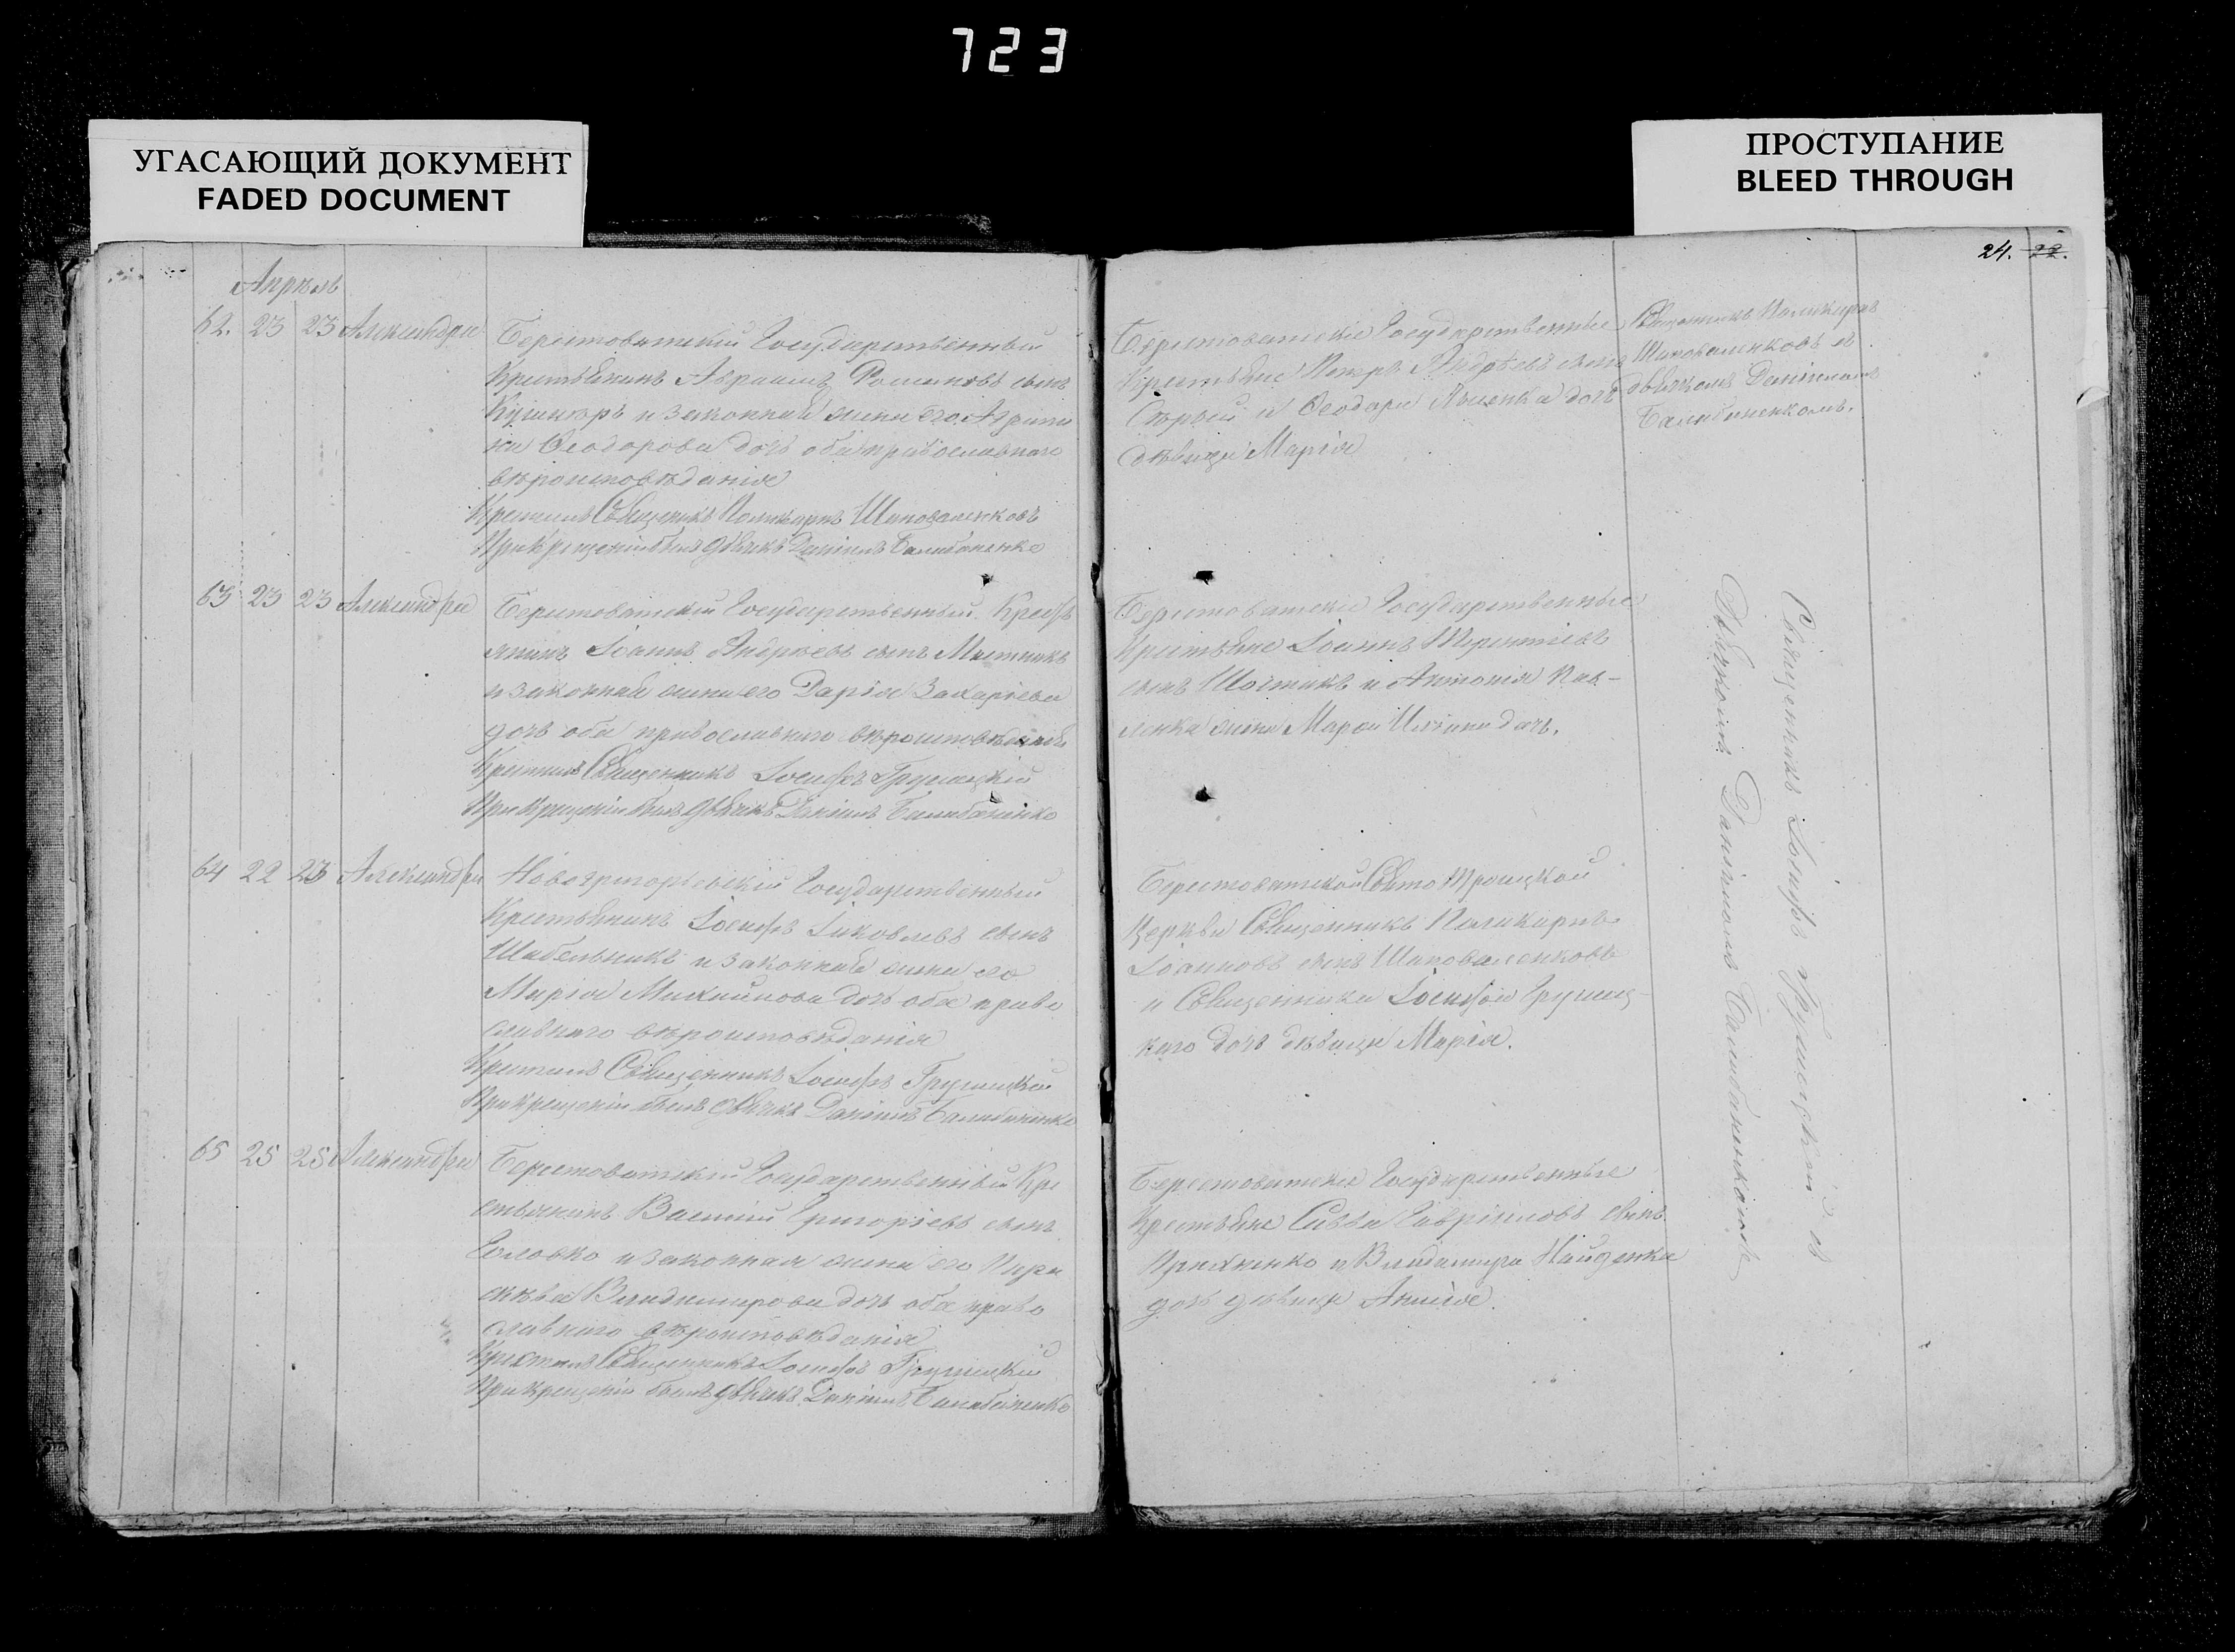 723
УГАСАЮЩИЙ ДОКУМЕНТ
FADED DOCUMENT
ПРОСТУПАНИЕ
BLEED THROUGH
24. 22.
Апрель
62. 23 23 Александра
Берестоватский Государственный
Крестьянинъ Авраамъ Романовъ сынъ
и законная жена его
Феодорова дочь оба православнаго
вѣроисповѣданія
Крестилъ Священникъ Поликарпъ Шаповаленковъ
При Крещеніи былъ дьячкъ Даніилъ Балабаненко
Берестоватскіе Государственные
Крестьяне Петръ Андреевъ сынъ
и Феодора дочь
дѣвица Марія
Священникъ Поликарпъ
Шаповаленковъ съ
дьячкомъ Даніиломъ
Балабаненкомъ.
63 23 23 Александра
Берестоватский Государственный Кресть
янинъ Іоаннъ Андреевъ сынъ
и законная жена его Дарія Захаріева
дочь оба православнаго вѣроисповѣданія
Крестилъ Священникъ Іосифъ Грушецкій
При Крещеніи былъ дьячкъ Даніилъ Балабаненко
Берестоватскіе Государственные
Крестьяне Іоаннъ Терентіевъ
сынъ Шостакъ и Антонія Пав-
ленка жена дочь.
64 22 23 Александра
Новогригорьевскій Государственный
Крестьянинъ Іосифъ Іаковлевъ сынъ
Шабельникъ и законная жена его
Марія Михайлова дочь оба право
славнаго вѣроисповѣданія
Крестилъ Священникъ Іосифъ Грушецкій
При крещеніи былъ дьячкъ Даніилъ Балабаненко
Берестоватской Свято Троицкой
Церкви Священникъ Поликарпъ
Іоанновъ сынъ Шаповаленковъ
и Священника Іосифа Грушец-
каго дочь дѣвица Марія.
65 25 25 Александра
Берестоватский Государственный Кре
стьянинъ Василій Григоріевъ сынъ
Головко и законная жена его Пара
скева Владимирова дочь оба право
славнаго вѣроисповѣданія
Крестилъ Священникъ Іосифъ Грушецкій
При крещеніи былъ дьячкъ Даніилъ Балабаненко
Берестоватскіе Государственные
Крестьяне Савва Гавріиловъ сынъ
и Владимира Найденка
дочь дѣвица
Священникъ Іосифъ Грушецкій съ
Дьячкомъ Даніиломъ Балабаненкомъ